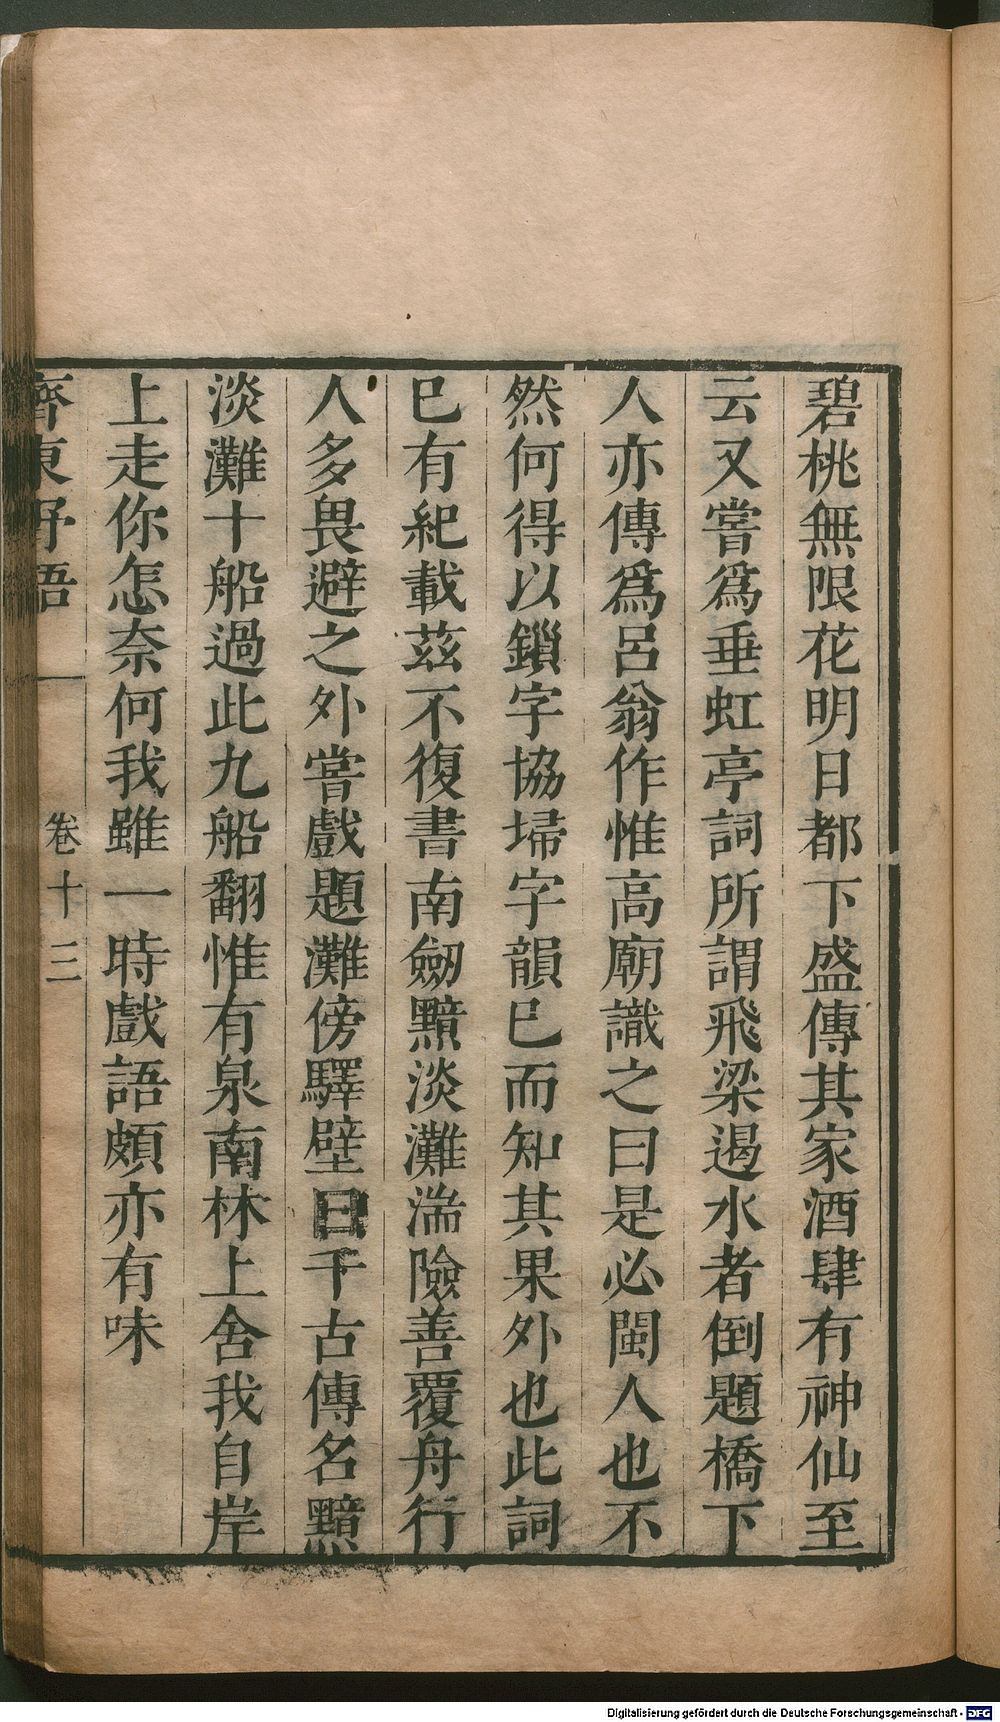 碧桃無限花明日都下盛傳其家酒肆有神仙至
云又嘗爲垂虹亭詞所謂飛梁遏水者倒題橋下
人亦傳爲呂翁作惟高廟識之曰是必閩人也不
然何得以鎻字協埽字韻巳而知其果外也此詞
巳有紀載茲不復書南劒黯淡灘湍險善覆舟行
人多畏避之外嘗戲題灘傍驛壁曰千古傳名黯
淡灘十船過此九船翻惟有泉南林上舍我自岸
上走你怎奈何我雖一時戲語頗亦有味
齊東野語 卷十三
Digitalisierung gefördert durch die Deutsche Forschungsgemeinschaft - DFG